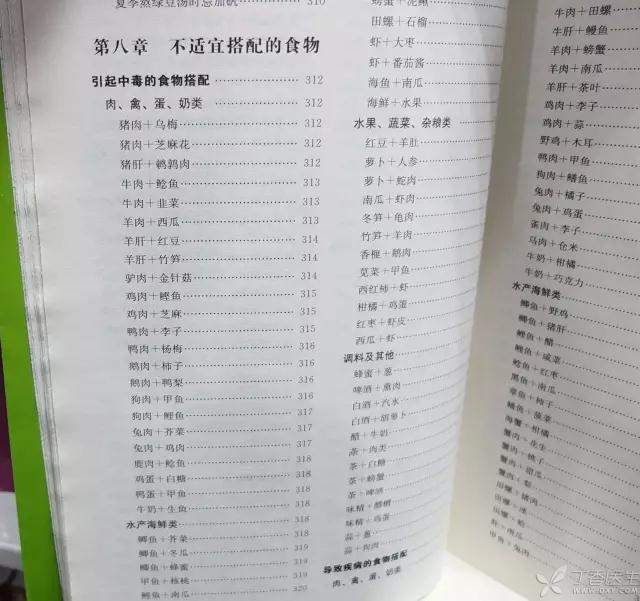 夏季熬绿豆汤时忌加矾 310
第八章 不适宜搭配的食物
引起中毒的食物搭配 312
肉、禽、蛋、奶类 312
猪肉+乌梅 312
猪肉+芝麻花 312
猪肝+鹌鹑肉 312
牛肉+鲶鱼 313
牛肉+韭菜 313
羊肉+西瓜 313
羊肝+红豆 314
羊肝+竹笋 314
驴肉+金针菇 314
鸡肉+鲤鱼 315
鸡肉+芝麻 315
鸭肉+李子 315
鸭肉+杨梅 316
鹅肉+柿子 316
鹅肉+鸭梨 316
狗肉+甲鱼 316
狗肉+鲤鱼 317
兔肉+芥菜 317
兔肉+鸡肉 317
鹿肉+鲶鱼 318
鸡蛋+白糖 318
鸭蛋+甲鱼 318
牛奶+生鱼 318
水产海鲜类 318
鲫鱼+芥菜 318
鲫鱼+冬瓜 319
鲫鱼+蜂蜜 319
甲鱼+核桃 319
鲤鱼+南瓜 320
螃蟹+泥鳅
田螺+石榴
虾+大枣
虾+番茄酱
海鱼+南瓜
海鲜+水果
水果、蔬菜、杂粮类
红豆+羊肚
萝卜+人参
萝卜+蛇肉
南瓜+虾肉
冬笋+龟肉
竹笋+羊肉
香榧+鹅肉
苋菜+甲鱼
西红柿+虾
柑橘+鸡蛋
红枣+虾皮
西瓜+虾
调料及其他
蜂蜜+葱
啤酒+熏肉
白酒+汽水
白酒+胡萝卜
醋+牛奶
茶+肉类
茶+白糖
茶+螃蟹
茶+啤酒
味精+醋
味精+鸡蛋
蒜+葱
蒜+狗肉
导致疾病的食物搭配
肉、禽、蛋、奶类
牛肉+田螺
牛肝+鳗鱼
羊肉+螃蟹
羊肉+南瓜
羊肝+茶叶
鸡肉+李子
鸡肉+蒜
野鸡+木耳
鸭肉+甲鱼
狗肉+鳝鱼
兔肉+橘子
兔肉+鸡蛋
雀肉+李子
马肉+仓米
牛奶+柑橘
牛奶+巧克力
水产海鲜类
鲫鱼+野鸡
鲫鱼+猪肝
鲤鱼+醋
鲤鱼+咸菜
鲶鱼+红枣
黑鱼+南瓜
章鱼+柿子
鳝鱼+菠菜
海蟹+柑橘
蟹肉+花生
蟹肉+桃子
蟹肉+甜瓜
蟹肉+梨
田螺+猪肉
田螺+冰
田螺+蛤
虾+南瓜
甲鱼+兔肉
丁香医生